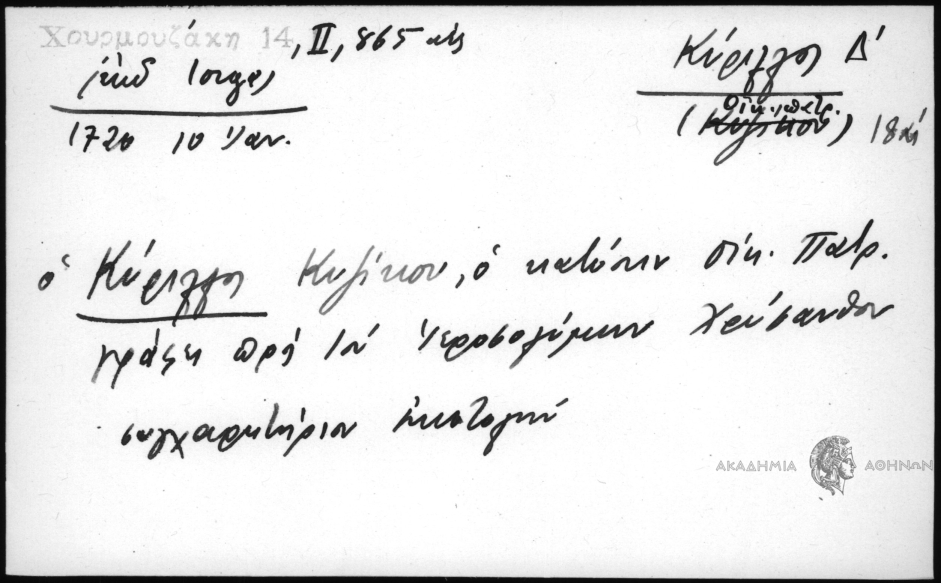 Χουρμουζάκη 14, ΙΙ, 865 κἑ
1720 10 Ἰαν.
Κύριλλος Δ΄
Οἰκ. πατρ.
(Κυζίκου) 18ος
ὁ Κύριλλος Κυζίκου, ὁ κατόπιν Οἰκ. Πατρ.
γράφει πρὸς τὸν Ἱεροσολύμων Χρύσανθον
συγχαρητήριον ἐπιστολήν
ΑΚΑΔΗΜΙΑ ΑΘΗΝΩΝ